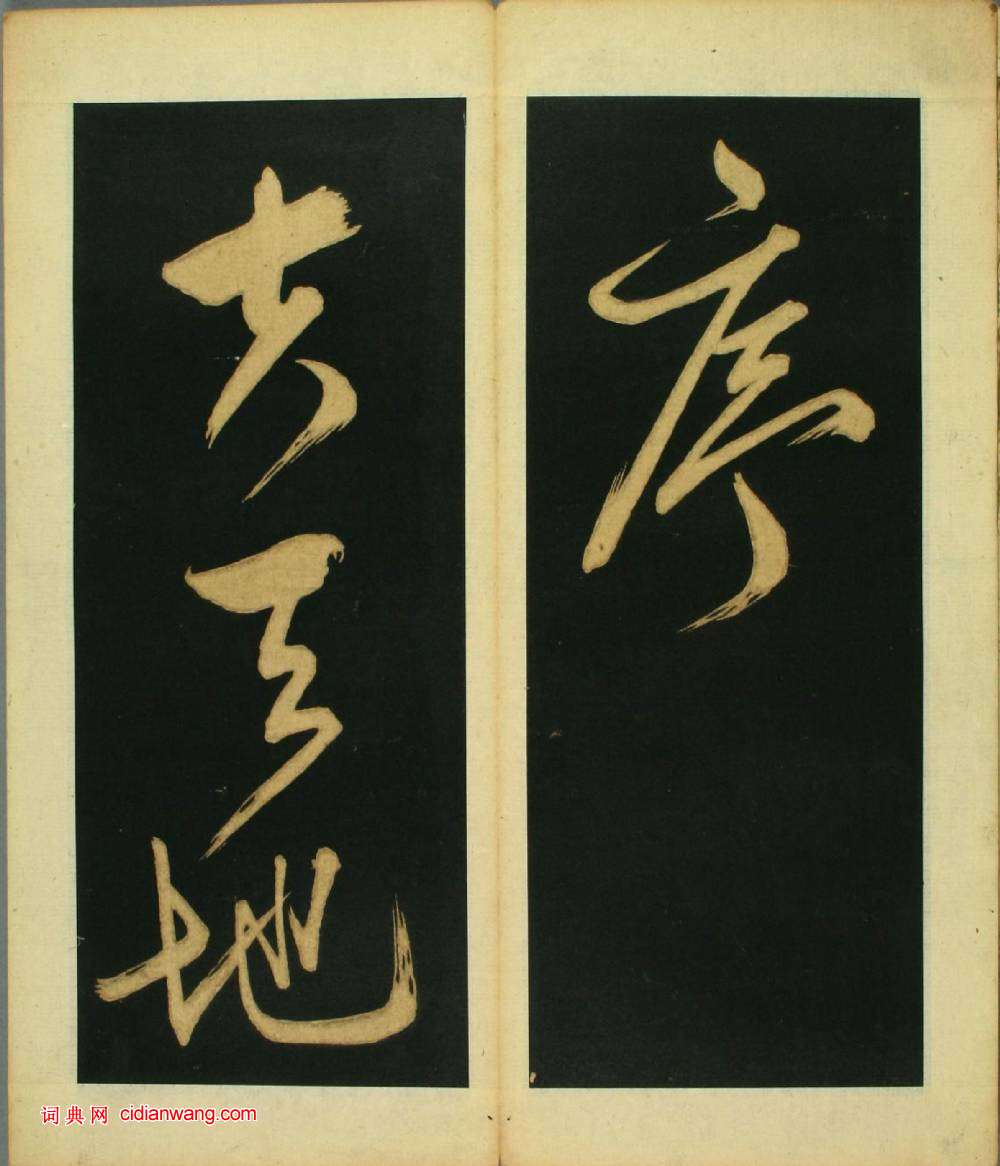 序
夫天地
词典网 cidianwang.com